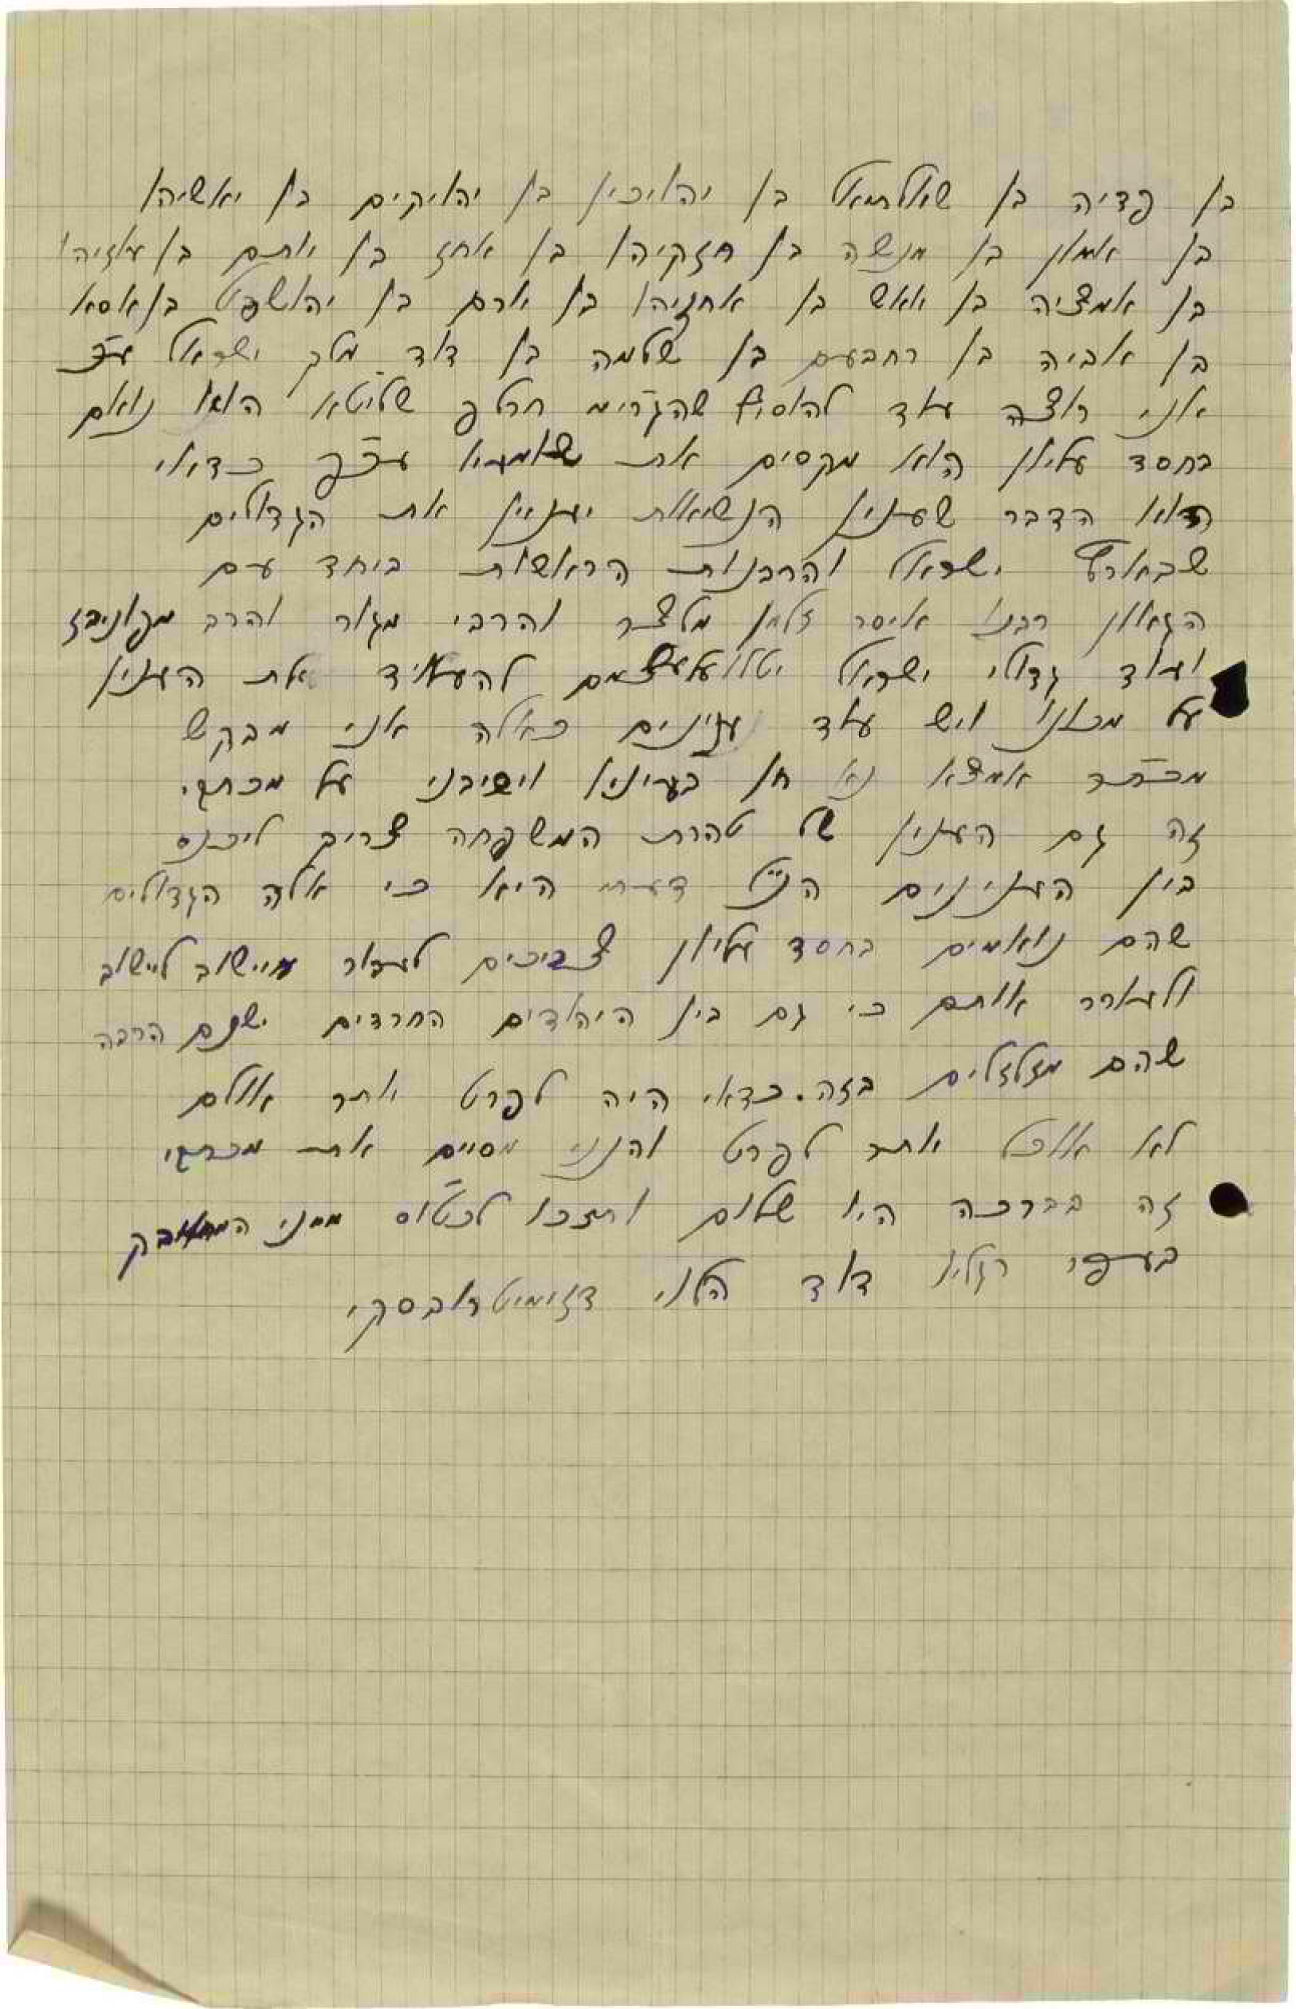 בן פדיה בן שאלתיאל בן יהויכין בן יהויקים בן יאשיהו
בן אמון בן מנשה בן חזקיהו בן אחז בן יותם בן עוזיהו
בן אמציה בן יואש בן אחזיהו בן יורם בן יהושפט בן אסא
בן אביה בן רחבעם בן שלמה בן דוד מלך ישראל
אני רוצה עוד להוסיף חרל״פ שליט״א הוא נואם
בחסד עליון הוא מקסים את שומעיו כדאי
הוא הדבר שענין הנשיאות יענין את הגדולים
שבארץ ישראל והרבנות הראשית ביחד עם
הגאון רבנו איסר זלמן מלצר והרבי מגור והרב
ועוד גדולי ישראל להעמיד את הענין
על מכונו ויש עוד ענינים כאלה אני מבקש
אמצא נא חן בעיניו וישיבני על מכתבי
זה גם הענין של טהרת המשפחה צריך ליכנס
בין הענינים הנ״ל דעתי היא כי אלה הגדולים
שהם נואמים בחסד עליון צריכים לעבור מיישוב ליישוב
ולעורר אותם כי גם בין היהודים החרדים ישנם הרבה
שהם מזלזלים בזה. כדאי היה לפרט יותר אולם
לא אוכל יותר לפרט והנני מסיים את מכתבי
זה בברכה היו שלום ותזכו לכט״ס ממני המתאבק
בעפר רגליו דוד הלוי דזימיטרובסקי